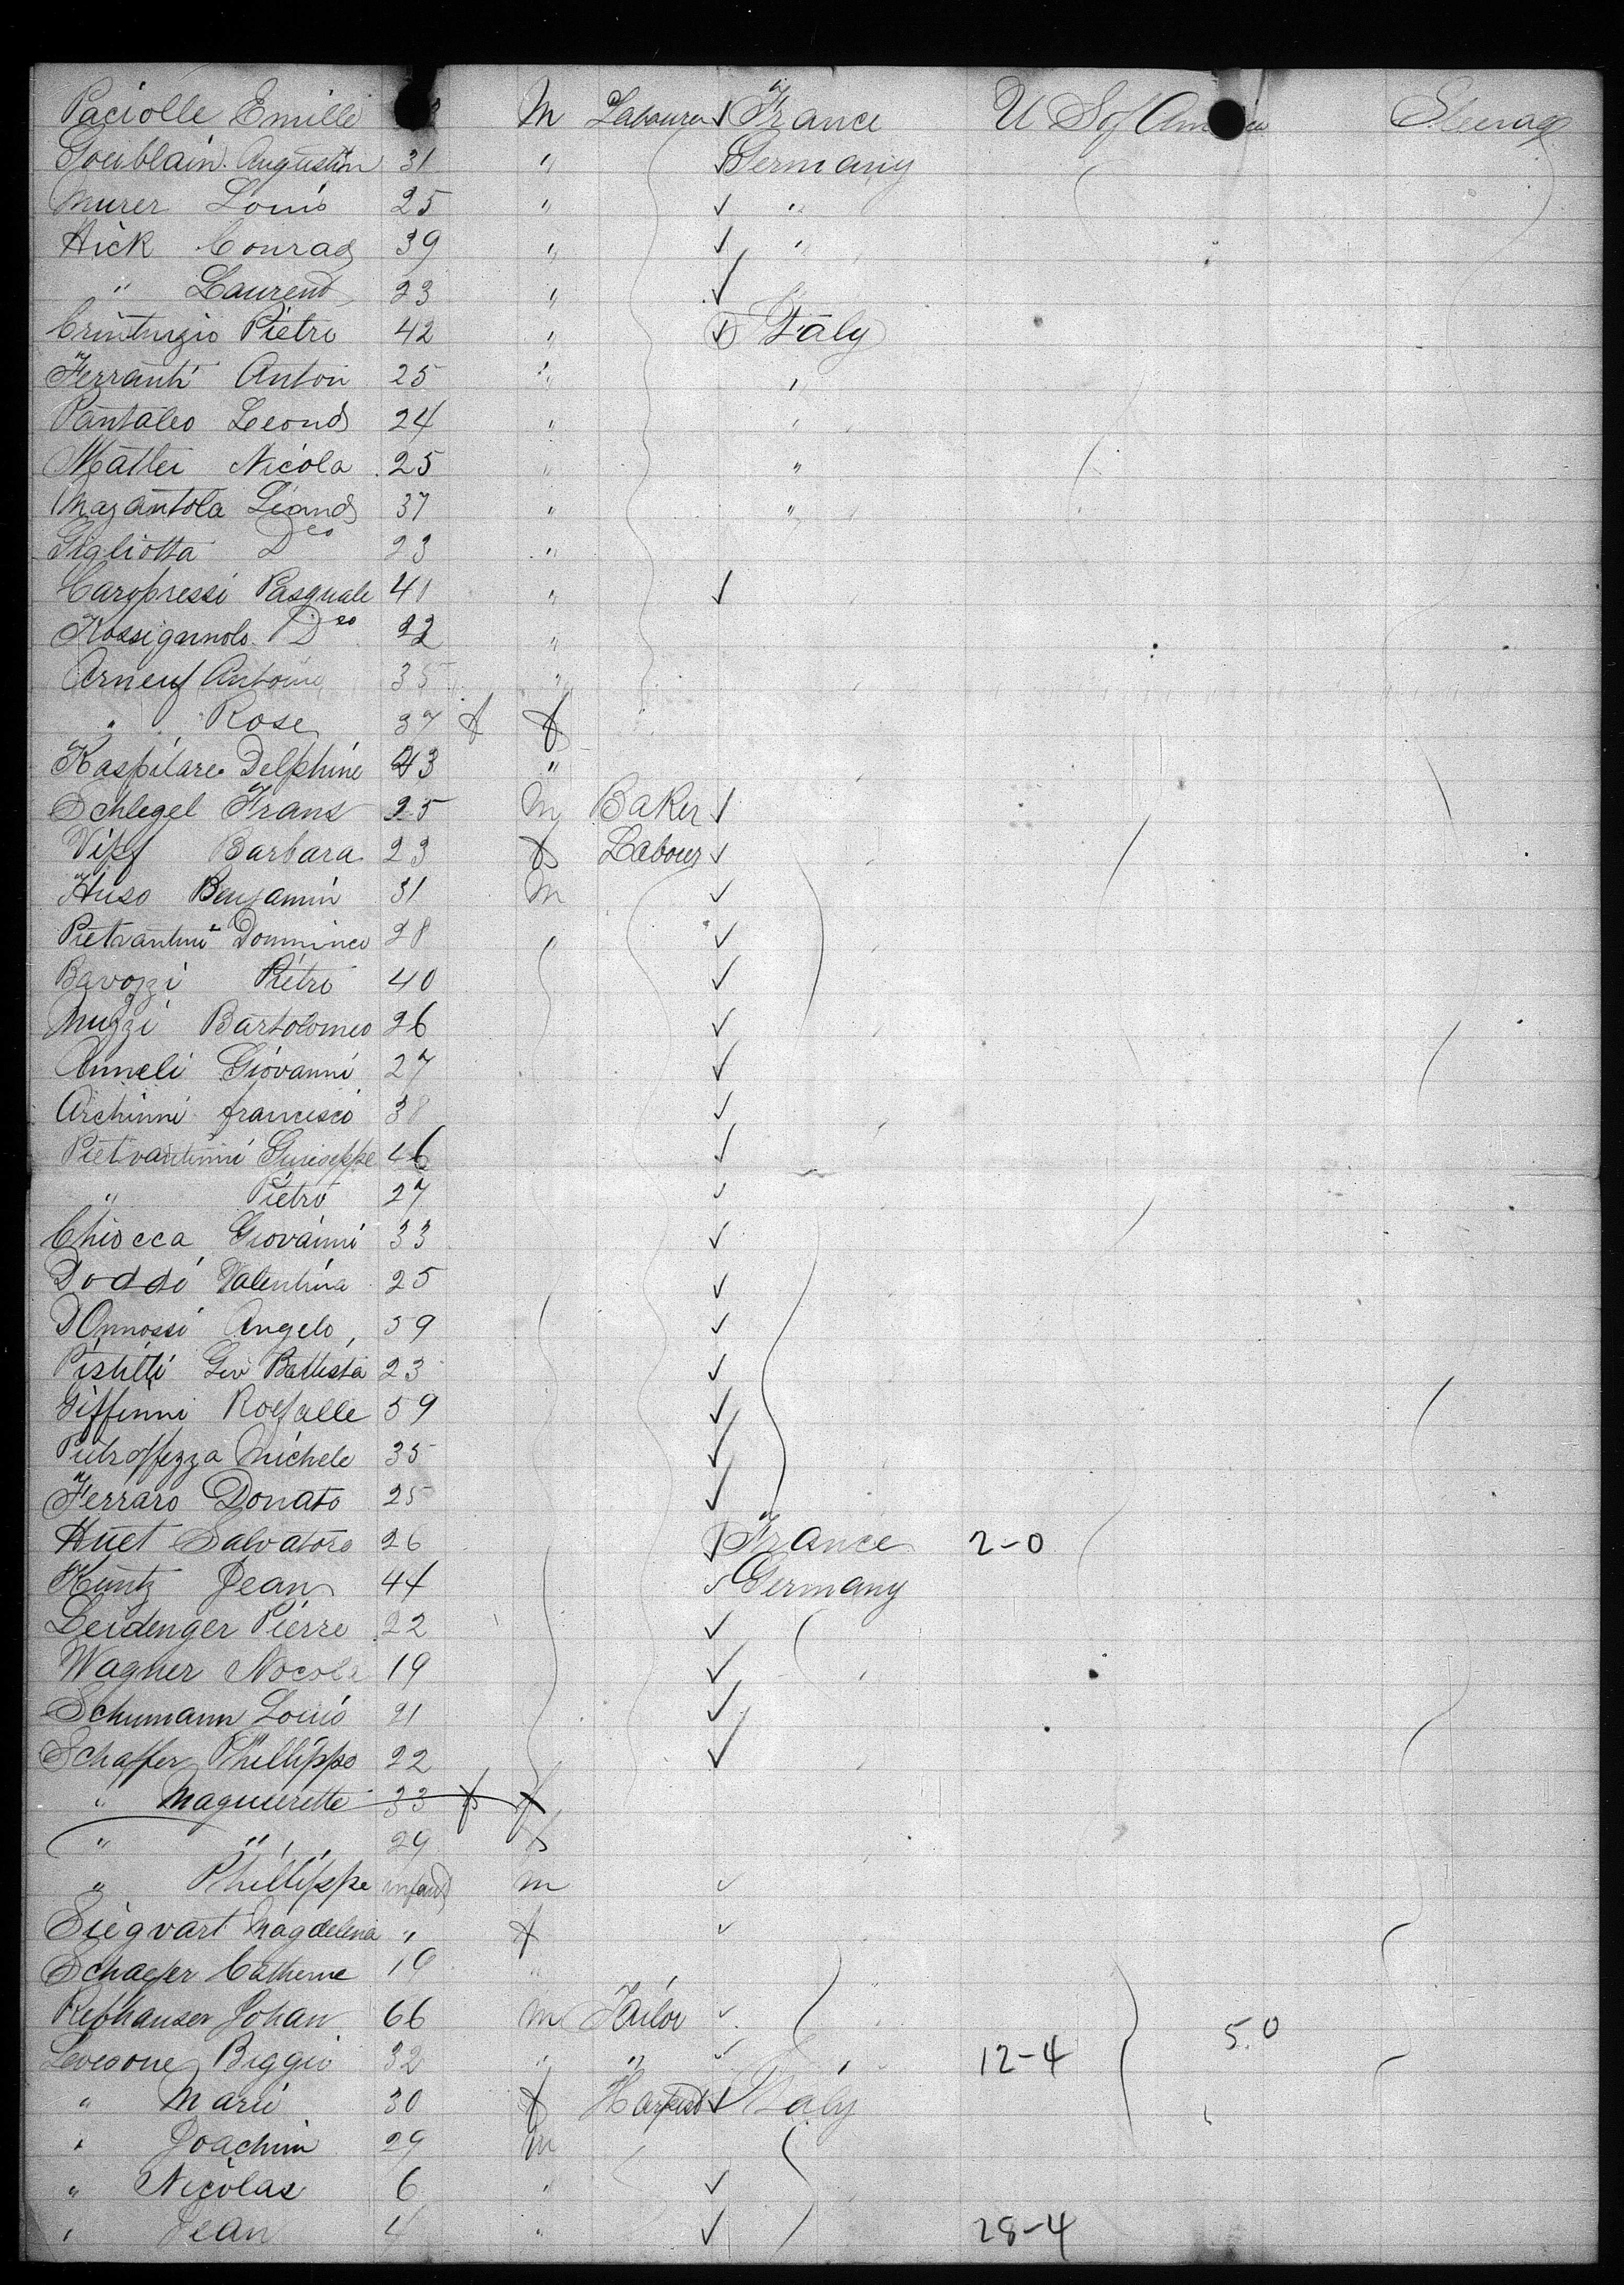 Paciolle Emille M Labourer France U S of America Steerage
Goublain Augustin 31 " Germany
Murer Louis 25 " "
Hick Conrad 39 " "
" Laurend 23 "
Pietro 42 " Italy
Ferranti Anton 25 " "
Pantaleo Leond 24 " "
Mattei Nicola 25 " "
Mazantola Leond 37 " "
Gigliotta Dco 23 "
Caropressi Pasquale 41 "
Rossignnolo Dco 22 "
Arneuf Antoine 35 "
" Rose 37 f f
Kaspilare Delphine 43 "
Schlegel Frans 25 M Baker
Vipf Barbara 23 f Labour
Huso Benjamin 31 M
Pietrantini Dominico 28 "
Bavozzi Pietro 40
Muzzi Bartolomeo 26
Anneli Giovanni 27
Archinni francisco 38
Pietrantinni Guiseppe 46
" Pietro 27
Chiocca Giovanni 33
Doddi Valentina 25
DOnnossi Angelo, 39
Pistilli Giv Battista 23
Giffinni Roffalle 59
Pietroffezza Michele 35
Ferraro Donato 25
Huet Salvatore 26 France 2-0
Kuntz Jean 44 Germany
Leidenger Pierre 22
Wagner Nocola 19
Schumann Louis 21
Schaffer Phillippe 22
" Maguerette 33 f f
" " 29 f
" Phillippe infant m
Siegvart Magdelena " f
Schaefer Catherine 19 "
Rebhauser Johan 66 M Tailor 5.0
Levesone Biggio 32 " " 12-4
" Marie 30 f Italy
" Joachim 29 m
" Nicolas 6 "
" Jean 4 " 28-4